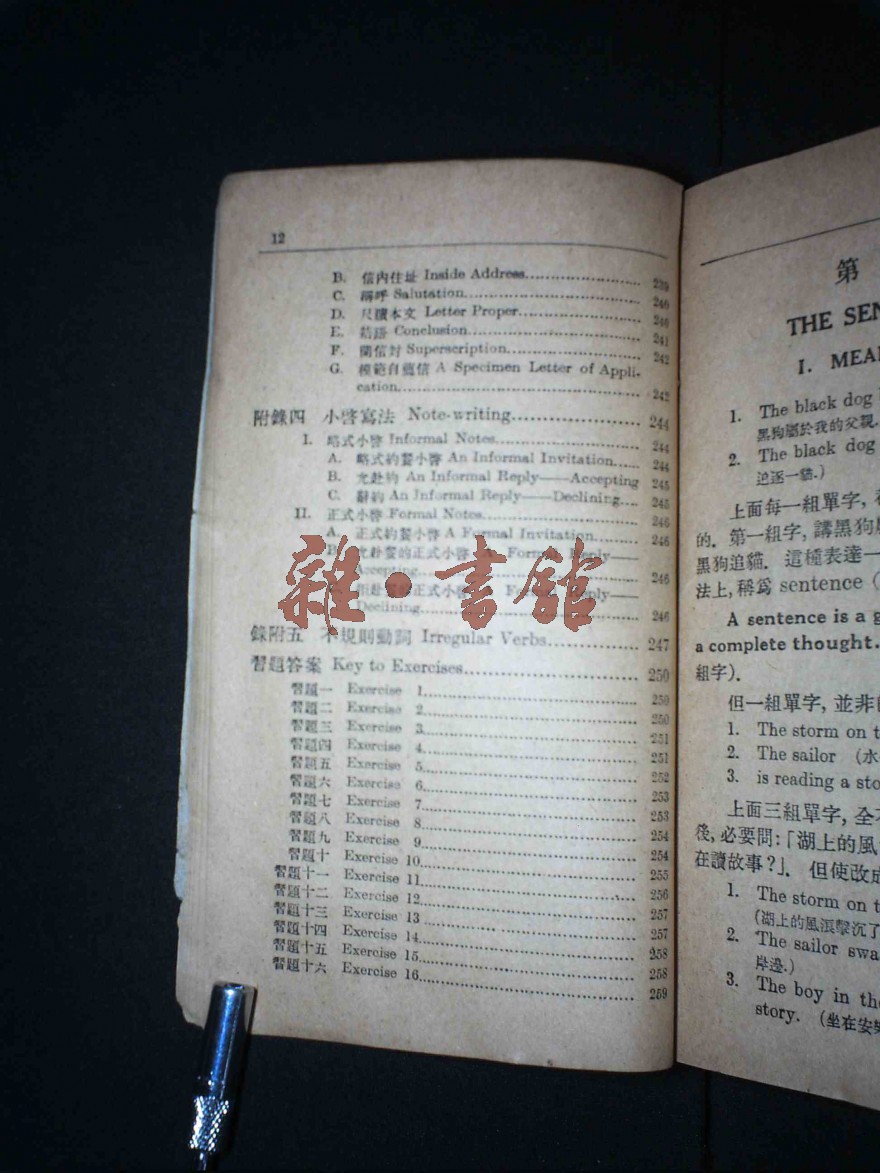 12
B. 信內住址 Inside Address 239
C. 稱呼 Salutation 240
D. 尺牘本文 Letter Proper 240
E. 結語 Conclusion 241
F. 信封 Superscription 242
G. 種範自薦信 A Specimen Letter of Appli-
cation 242
附錄四 小啓寫法 Note-writing 244
I. 略式小啓 Informal Notes 244
A. 略式約宴小啓 An Informal Invitation 244
B. 允赴約 An Informal Reply——Accepting 245
C. 辭約 An Informal Reply——Declining 245
II. 正式小啓 Formal Notes 246
A. 正式約宴小啓 A Formal Invitation 246
B. 允赴宴的正式小啓 A Formal Reply——
Accepting 246
正式小啓 Formal Reply——
Declining 246
錄附五 不規則動詞 Irregular Verbs 247
習題答案 Key to Exercises 250
習題一 Exercise 1 250
習題二 Exercise 2 250
習題三 Exercise 3 251
習題四 Exercise 4 251
習題五 Exercise 5 252
習題六 Exercise 6 253
習題七 Exercise 7 253
習題八 Exercise 8 254
習題九 Exercise 9 254
習題十 Exercise 10 255
習題十一 Exercise 11 256
習題十二 Exercise 12 257
習題十三 Exercise 13 257
習題十四 Exercise 14 258
習題十五 Exercise 15 258
習題十六 Exercise 16 259
雜·書館
第
THE SEN
I. MEA
1. The black dog
黑狗屬於我的父親.
2. The black dog
追逐一貓.)
上面每一組單字,
的. 第一組字, 講黑狗
黑狗追貓. 這種表達一
法上, 稱爲 sentence (
A sentence is a g
a complete thought.
組字).
但一組單字, 並非
1. The storm on t
2. The sailor (水
3. is reading a sto
上面三組單字, 全不
後, 必要問:「湖上的風
在讀故事?」. 但使改成
1. The storm on t
(湖上的風浪擊沉了
2. The sailor swa
岸邊.)
3. The boy in the
story. (坐在安樂